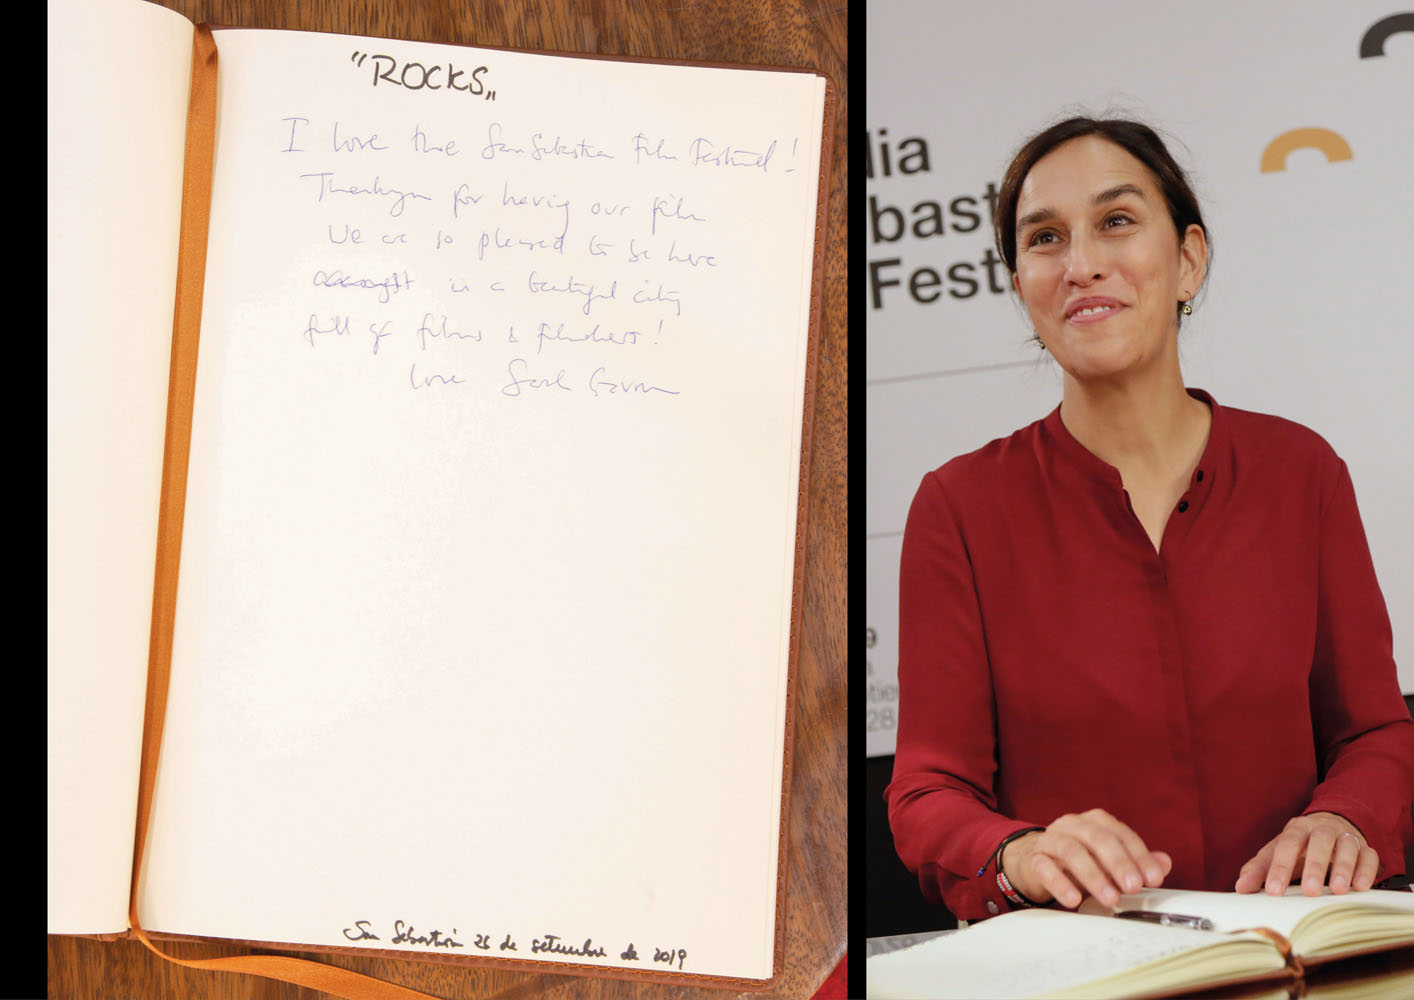 "ROCKS"
I love the San Sebastian Film Festival!
Thankyou for having our film
We are so pleased to be here
in a beautiful city
full of films & filmmakers!
love Sarah Gavron
San Sebastián 26 de setiembre de 2019
dia
bast
Festi
9
28